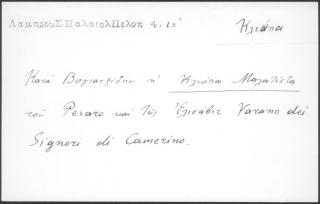 Λαμπρου Σ. Παλαιολ Πελοπ 4. ιε´
Κλεόπα
Κατὰ Βογιατζίδην ἡ Κλεόπα Μαλατέστα
τοῦ Pesaro καὶ τῆς Ἐλισάβετ Varano dei
Signori di Camerino.